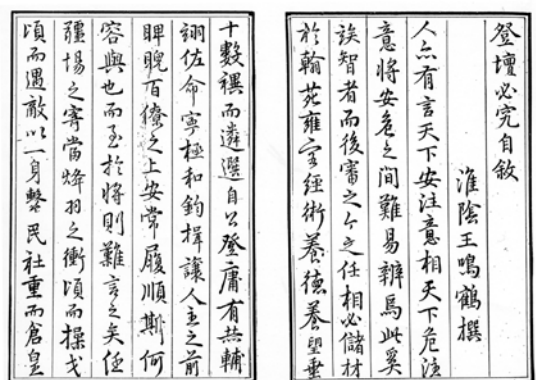 登壇必究自敘
淮陰王鳴鶴撰
人亦有言天下安注意相天下危注
意將安危之間難易辨焉此奚
誒智者而後審之今之任相必儲材
於翰苑雍容經術養德養望垂
十數禩而遴選自公登庸有恭輔
翊佐命寧極和鈞揖讓人主之前
睥睨百獠之上安常履順斯何
容與也而至於將則難言之矣任
疆場之寄當烽羽之衝頃而操戈
頃而遇敵以一身繫民社重而倉皇